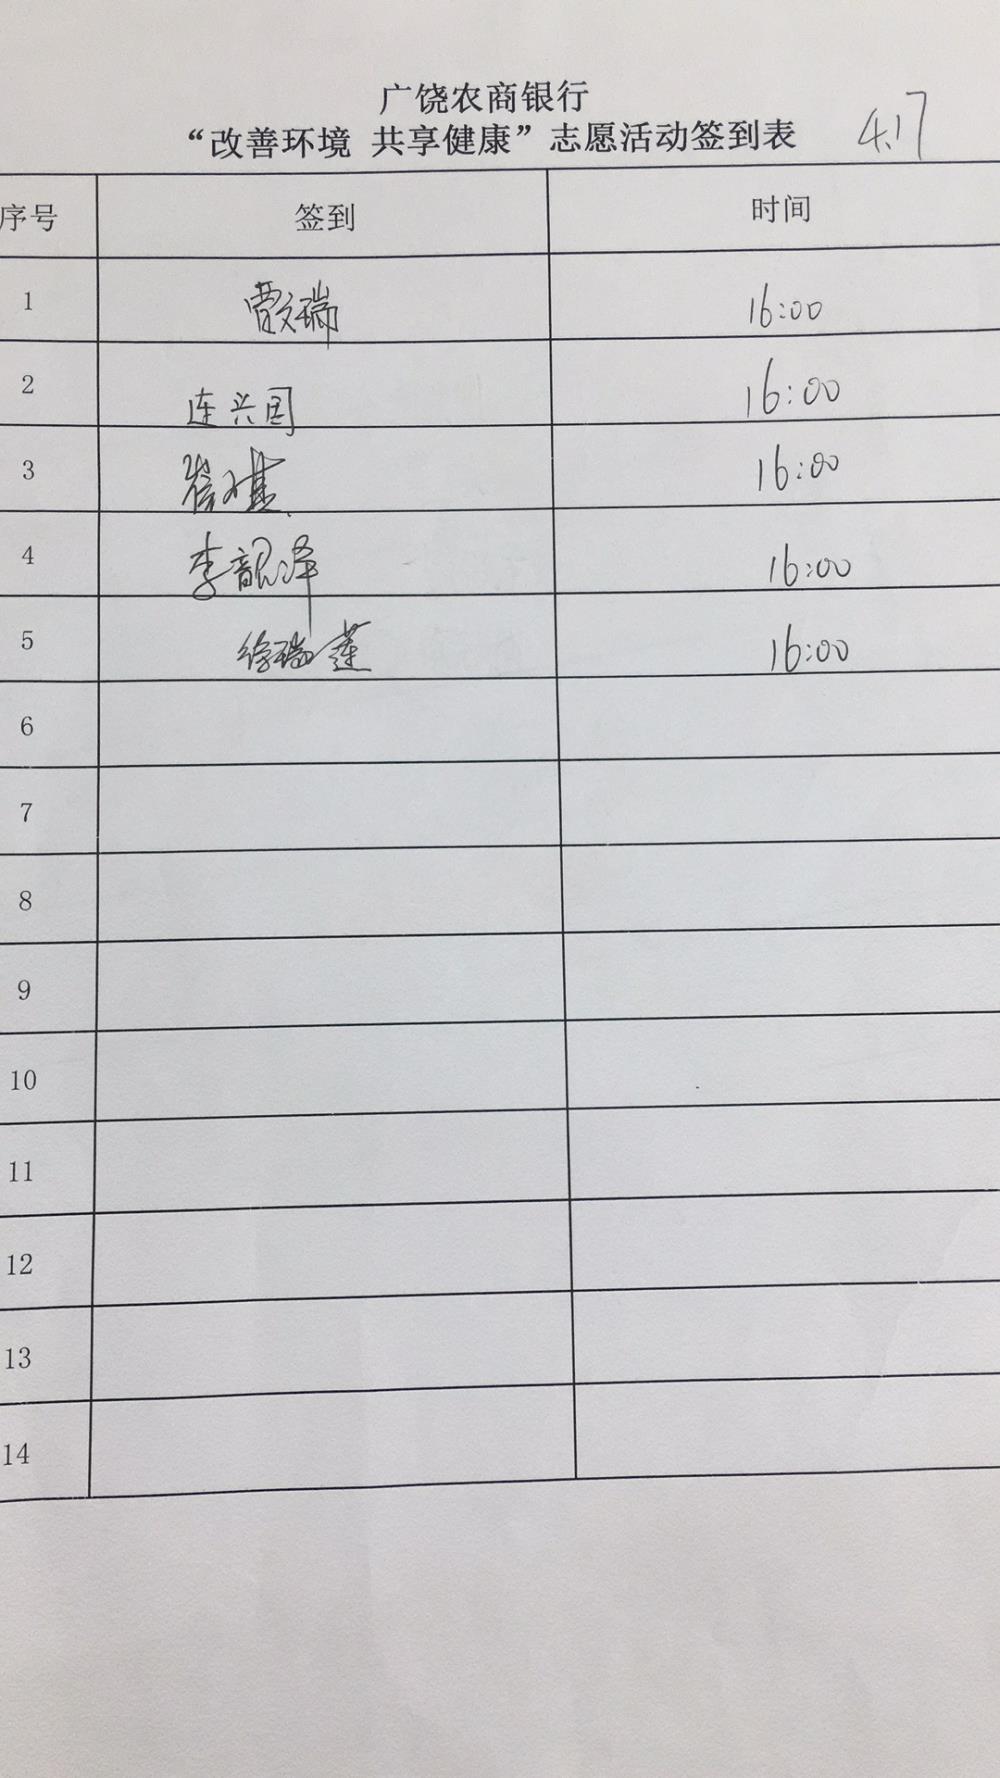 广饶农商银行
“改善环境 共享健康”志愿活动签到表 4.17
序号 签到 时间
1 贾文瑞 16:00
2 连兴国 16:00
3 崔 16:00
4 李韶泽 16:00
5 徐瑞莲 16:00
6
7
8
9
10
11
12
13
14